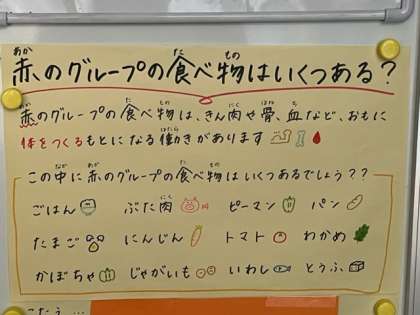 赤のグループの食べ物はいくつある?
赤のグループの食べ物は、きん肉や骨、血など、おもに
体をつくるもとになる働きがあります
この中に赤のグループの食べ物はいくつあるでしょう??
ごはん ぶた肉 ピーマン パン
たまご にんじん トマト わかめ
かぼちゃ じゃがいも いわし とうふ
こたえ…